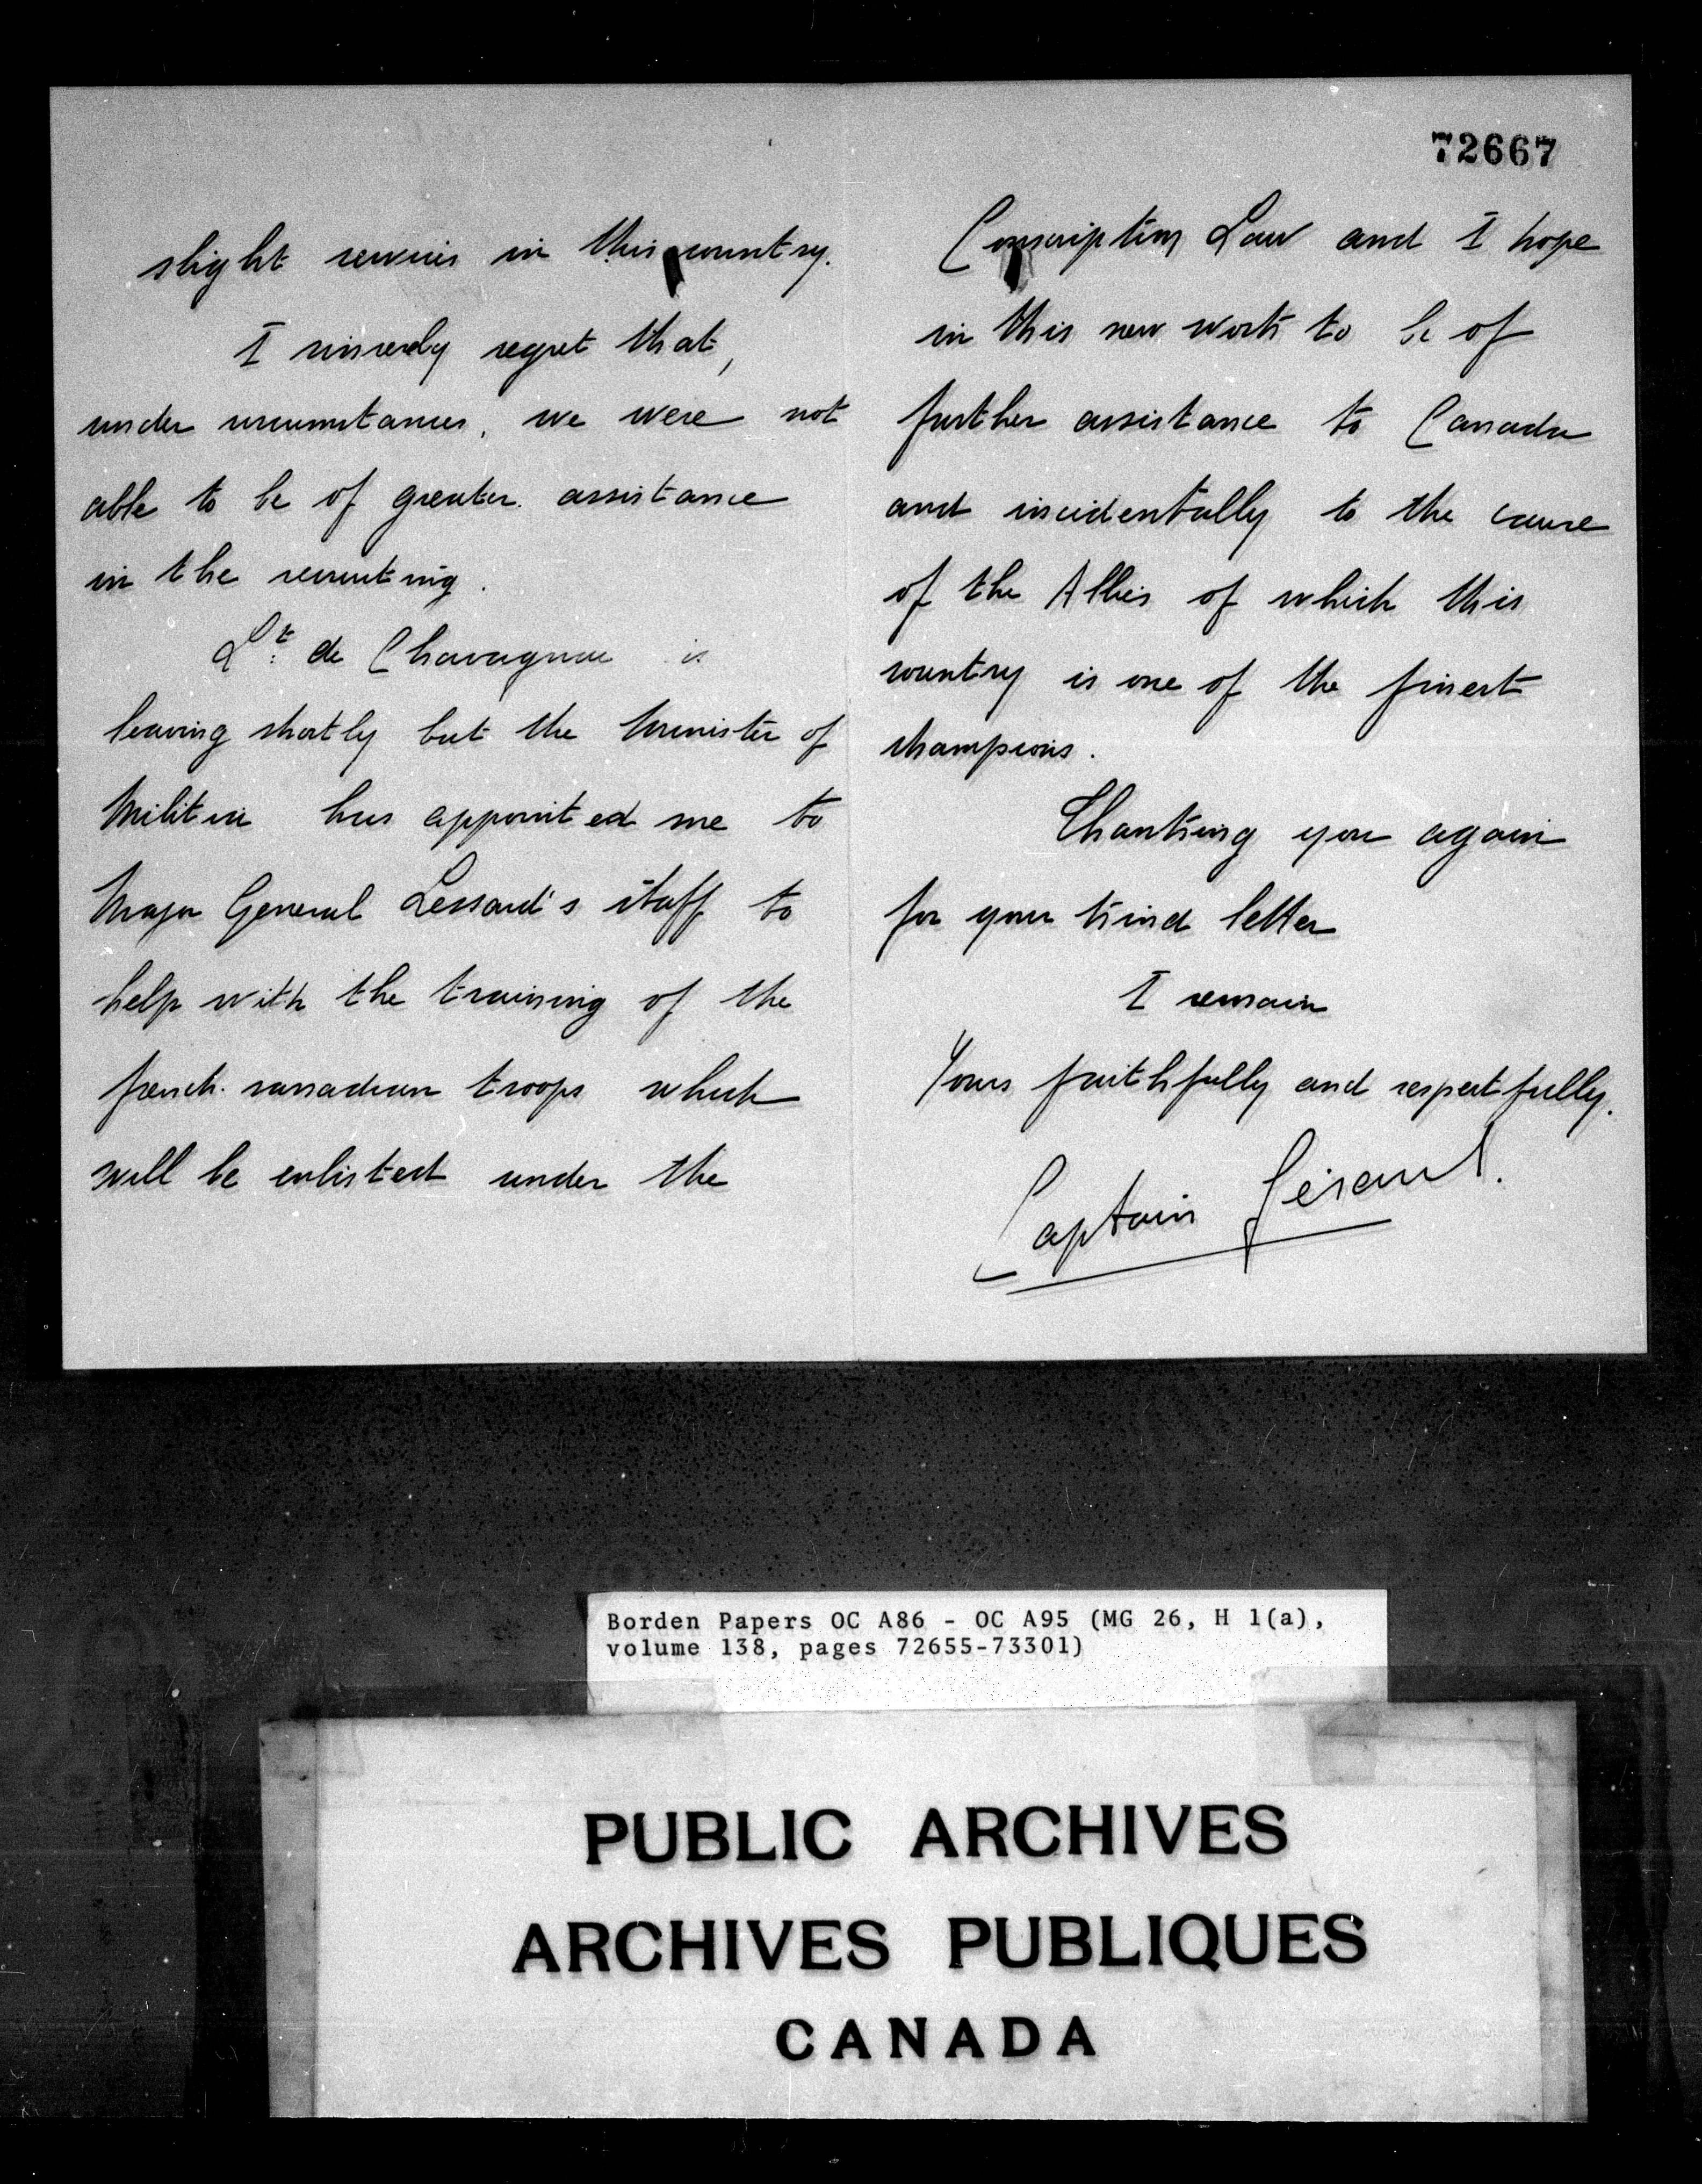 72667
slight services in this country.
I sincerely regret that,
under circumstances, we were not
able to be of greater assistance
in the recruiting.
Lt. de Chavagnac is
leaving shortly but the Minister of
Militia has appointed me to
Major General Lessard's staff to
help with the training of the
french-canadian troops which
will be enlisted under the
Conscription Law and I hope
in this new work to be of
further assistance to Canada
and incidentally to the cause
of the Allies of which this
country is one of the finest
champions.
Thanking you again
for your kind letter
I remain
Yours faithfully and respectfully.
Captain
Borden Papers OC A86 - OC A95 (MG 26, H 1(a),
volume 138, pages 72655-73301)
PUBLIC ARCHIVES
ARCHIVES PUBLIQUES
CANADA